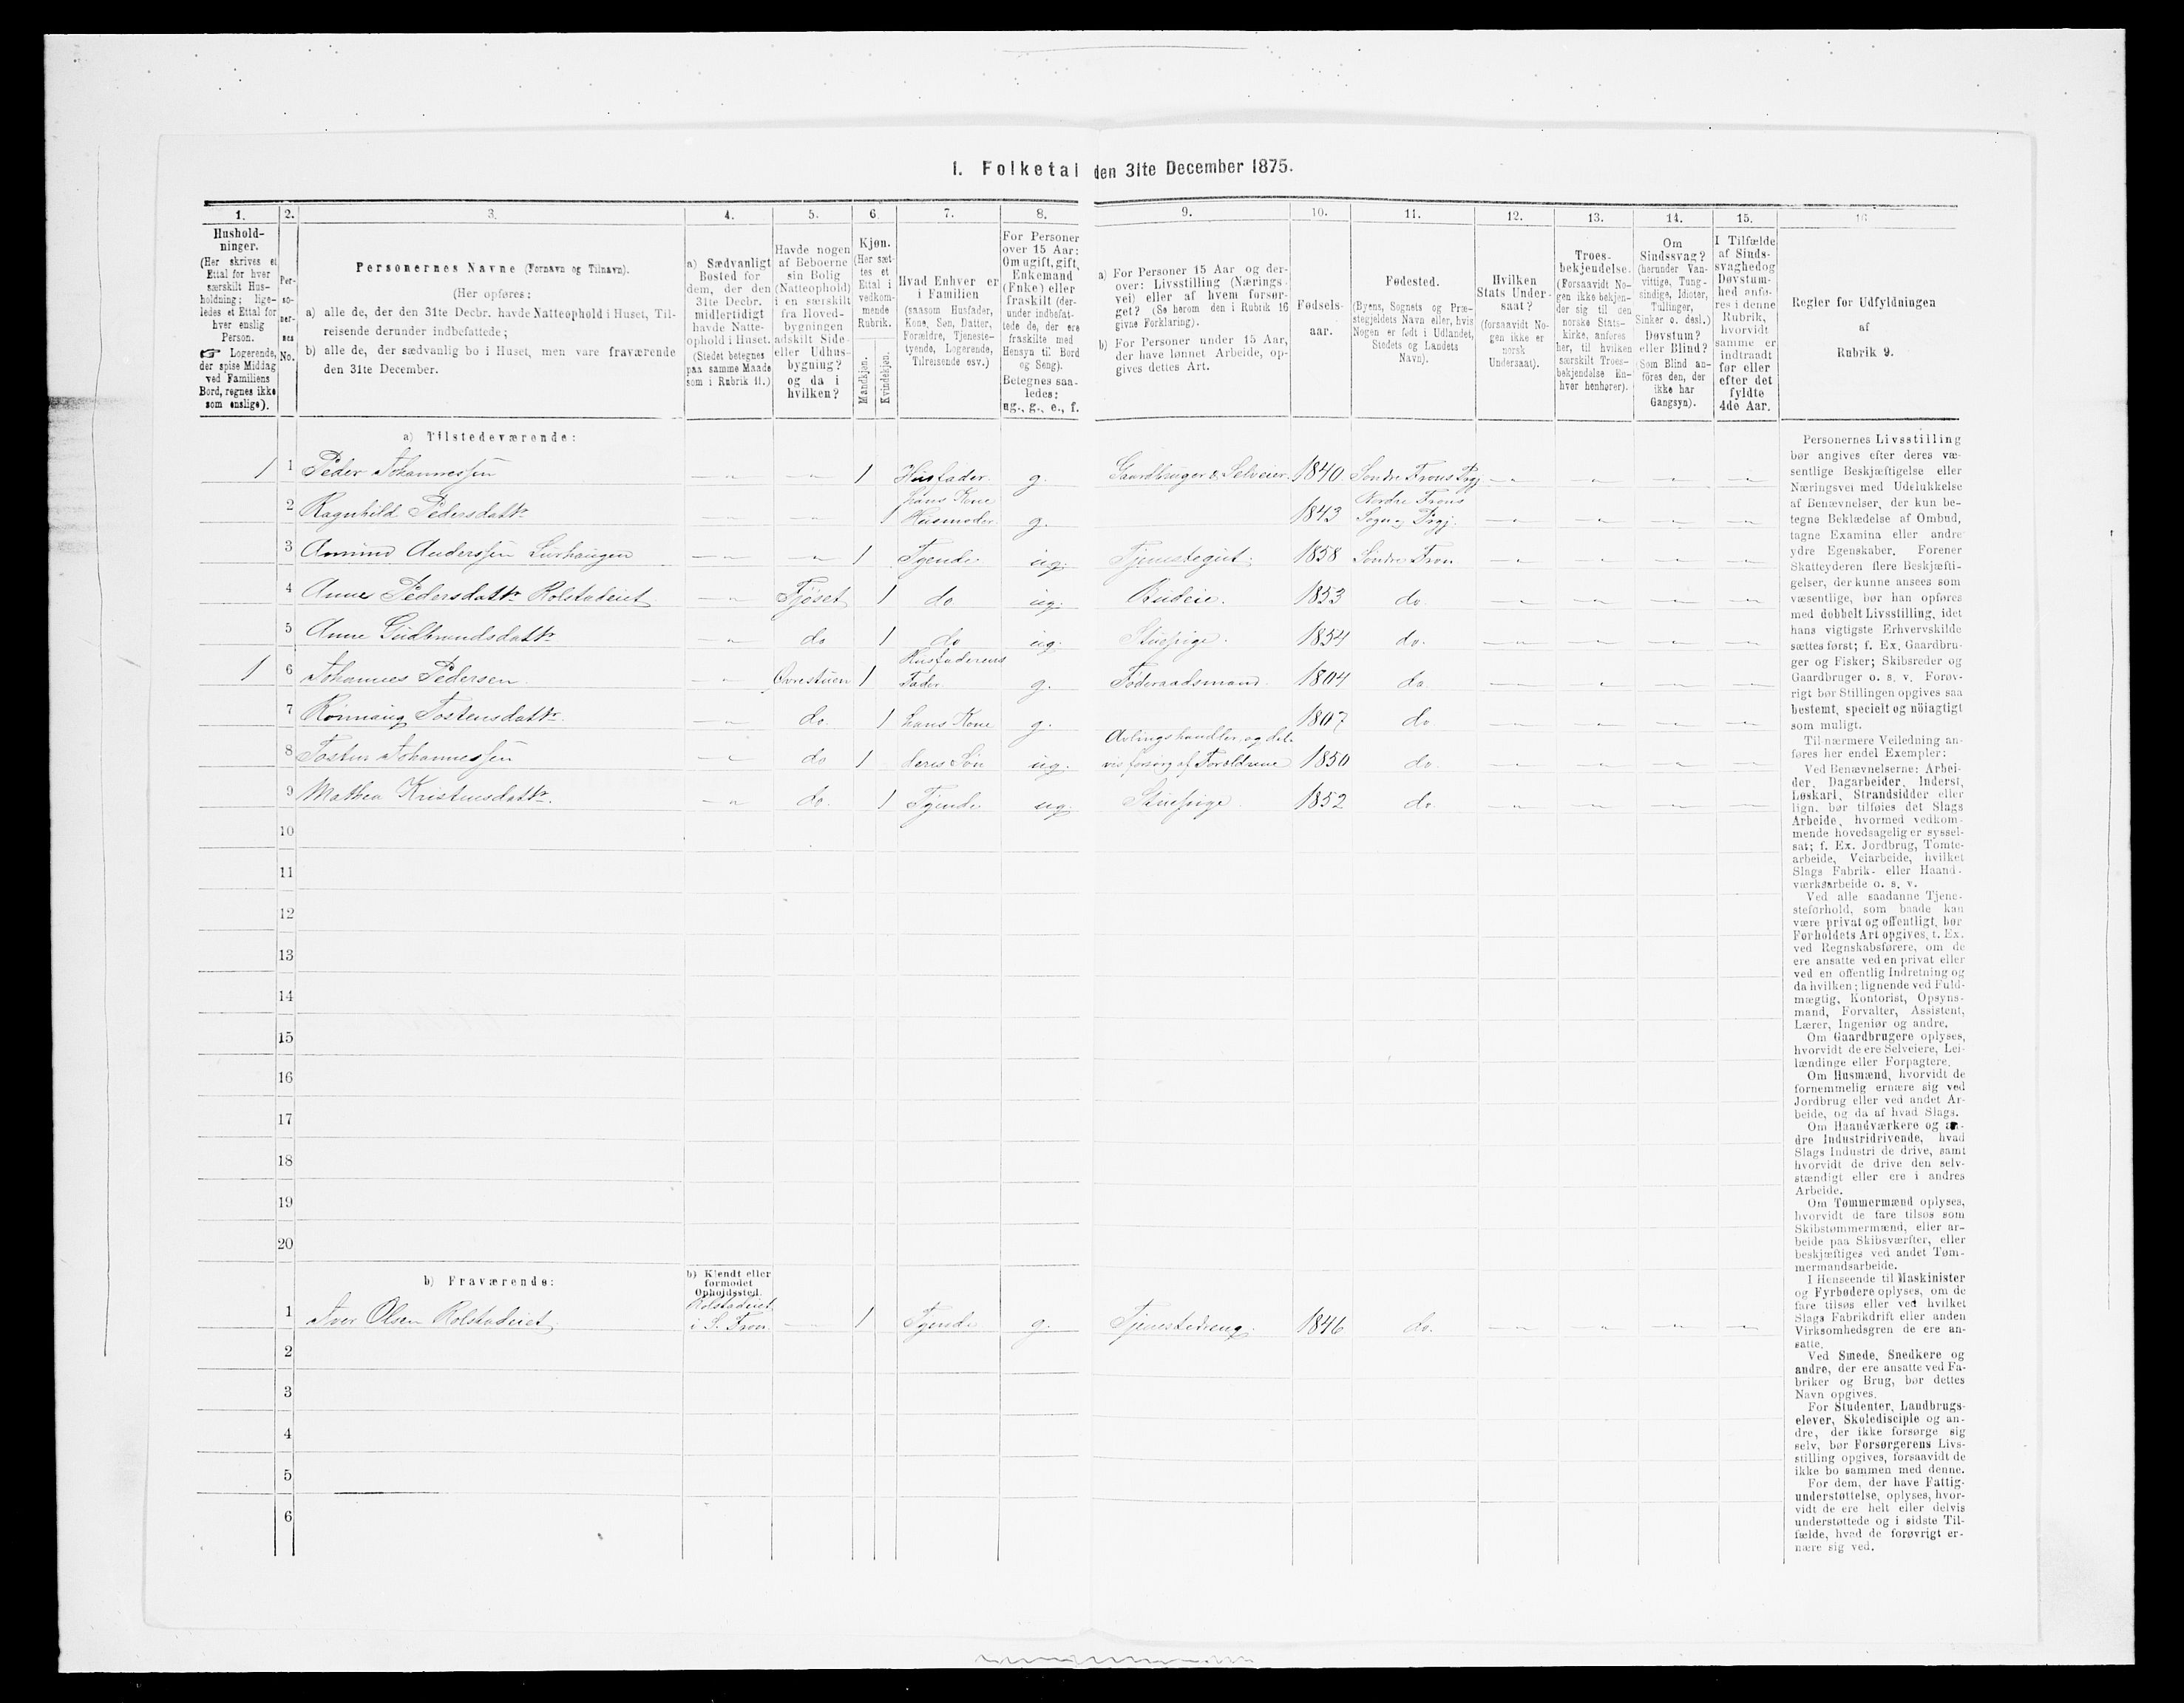 I. Folketal den 31te December 1875.
1. 2. 3. 4. 5. 6. 7. 8. 9. 10. 11. 12. 13. 14. 15. 16
Hushold-
ninger.
(Her skrives et
Ettal for hver
særskilt Hus-
holdning; lige-
ledes et Ettal for
hver enslig
Person.
☞ Logerende,
der spise Middag
ved Familiens
Bord, regnes ikke
som enslige).
Per-
so-
ner-
nes
No.
Personernes Navne (Fornavn og Tilnavn).
(Her opføres:
a) alle de, der den 31te Decbr. havde Natteophold i Huset, Til-
reisende derunder indbefattede;
b) alle de, der sædvanlig bo i Huset, men vare fraværende
den 31te December.
a) Sædvanligt
Bosted for
dem, der den
31te Decbr.
midlertidigt
havde Natte-
ophold i Huset.
(Stedet betegnes
paa samme Maade
som i Rubrik 11.)
Havde nogen
af Beboerne
sin Bolig
(Natteophold)
i en særskilt
fra Hoved-
bygningen
adskilt Side-
eller Udhus-
bygning?
og da i
hvilken?
Kjøn.
(Her sæt-
tes et
Ettal i
vedkom-
mende
Rubrik.
Mandkjøn.
Kvindekjøn.
Hvad Enhver er
i Familien
(saasom Husfader,
Kone, Søn, Datter,
Forældre, Tjeneste-
tyende, Logerende,
Tilreisende osv.)
For Personer
over 15 Aar:
Om ugift, gift,
Enkemand
(Enke) eller
fraskilt (der-
under indbefat-
tede de, der ere
fraskilte med
Hensyn til Bord
og Seng).
Betegnes saa-
ledes:
ug., g., e., f.
a) For Personer 15 Aar og der-
over: Livsstilling (Nærings-
vei) eller af hvem forsør-
get? (Se herom den i Rubrik 16
givne Forklaring).
b) For Personer under 15 Aar,
der have lønnet Arbeide, op-
gives dettes Art.
Fødsels-
aar.
Fødested.
(Byens, Sognets og Præ-
stegjeldets Navn eller, hvis
Nogen er født i Udlandet,
Stedets og Landets
Navn).
Hvilken
Stats Under-
saat?
(forsaavidt No-
gen ikke er
norsk
Undersaat).
Troes-
bekjendelse.
(Forsaavidt No-
gen ikke bekjen-
der sig til den
norske Stats-
kirke, anføres
her, til hvilken
særskilt Troes-
bekjendelse En-
hver henhører).
Om
Sindssvag?
(herunder Van-
vittige, Tung-
sindige, Idioter,
Tullinger,
Sinker o. desl.)
Døvstum?
eller Blind?
(Som Blind an-
føres den, der
ikke har
Gangsyn).
I Tilfælde
af Sinds-
svaghed og
Døvstum-
hed anfø-
res i denne
Rubrik,
hvorvidt
samme er
indtraadt
før eller
efter det
fyldte
4de Aar.
Regler for Udfyldningen
af
Rubrik 9.
a) Tilstedeværende:
1 1 Peder Johannessen — — 1 Husfader g. Gaardbruger & Selveier 1840 Søndre Frons Prgj
2 Ragnhild Pedersdattr — — 1 hans Kone Husmoder g. 1843 Nordre Frons Sogn og Prgj.
3 Amund Anderssen — — 1 Tyende ug. Tjenestegut 1858 Søndre Fron
4 Anne Pedersdattr Rolstadeiet — Fjøset 1 do ug. Budeie. 1853 do
5 Anne Gudbrandsdattr — do 1 do ug. Stuepige. 1854 do.
1 6 Johannes Pedersen — Øvrestuen 1 Husfaderens Fader g. Føderaadsmand 1804 do
7 Rønnaug Tostensdattr. — do. 1 hans Kone g. 1807 do.
8 Tosten Johannessen — do 1 deres Søn ug. Avlingshandler og del- vis forsørg. af Forældrene 1850 do.
9 Mathea Kristensdattr. — do. 1 Tyende ug. Stuepige. 1852 do.
10
11
12
13
14
15
16
17
18
19
20
b) Fraværende:
b) Kjendt eller
formodet
Opholdssted.
1 Iver Olsen Rolstadeiet Rolstadeiet i S. Fron. — 1 Tyende g. Tjenestedreng. 1846 do.
2
3
4
5
6
Personernes Livsstilling
bør angives efter deres væ-
sentlige Beskjæftigelse eller
Næringsvei med Udelukkelse
af Benævnelser, der kun be-
tegne Beklædelse af Ombud,
tagne Examina eller andre
ydre Egenskaber. Forener
Skatteyderen flere Beskjæfti-
gelser, der kunne ansees som
væsentlige, bør han opføres
med dobbelt Livsstilling, idet
hans vigtigste Erhvervskilde
sættes først; f. Ex. Gaardbru-
ger og Fisker; Skibsreder og
Gaardbruger o. s. v. Forøv-
rigt bør Stillingen opgives saa
bestemt, specielt og nöiagtigt
som muligt.
Til nærmere Veiledning an-
føres her endel Exempler:
Ved Benævnelserne: Arbei-
der, Dagarbeider, Inderst,
Løskarl, Strandsidder eller
lign. bør tilføies det Slags
Arbeide, hvormed vedkom-
mende hovedsagelig er syssel-
sat; f. Ex. Jordbrug, Tomte-
arbeide, Veiarbeide, hvilket
Slags Fabrik- eller Haand-
værksarbeide o. s. v.
Ved alle saadanne Tjene-
steforhold, som baade kan
være privat og offentligt, bør
Forholdets Art opgives, t. Ex.
ved Regnskabsførere, om de
ere ansatte ved en privat eller
ved en offentlig Indretning og
da hvilken; lignende ved Fuld-
mægtig, Kontorist, Opsyns-
mand, Forvalter, Assistent,
Lærer, Ingeniør og andre.
Om Gaardbrugere oplyses,
hvorvidt de ere Selveiere, Lei-
lændinge eller Forpagtere.
Om Husmænd, hvorvidt de
fornemmelig ernære sig ved
Jordbrug eller ved andet Ar-
beide, og da af hvad Slags.
Om Haandværkere og an-
dre Industridrivende, hvad
Slags Industri de drive, samt
hvorvidt de drive den selv-
stændigt eller ere i andres
Arbeide.
Om Tømmermænd oplyses,
hvorvidt de fare tilsøs som
Skibstømmermænd, eller ar-
beide paa Skibsværfter, eller
beskjæftiges ved andet Tøm-
mermandsarbeide.
I Henseende til Maskinister
og Fyrbødere oplyses, om de
fare tilsøs eller ved hvilket
Slags Fabrikdrift eller anden
Virksomhedsgren de ere an-
satte.
Ved Smede, Snedkere og
andre, der ere ansatte ved Fa-
briker og Brug, bør dettes
Navn opgives.
For Studenter, Landbrugs-
elever, Skoledisciple og an-
dre, der ikke forsørge sig
selv, bør Forsørgerens Livs-
stilling opgives, forsaavidt de
ikke bo sammen med denne.
For dem, der have Fattig-
understøttelse, oplyses, hvor-
vidt de ere helt eller delvis
understøttede og i sidste Til-
fælde, hvad de forøvrigt er-
nære sig ved.